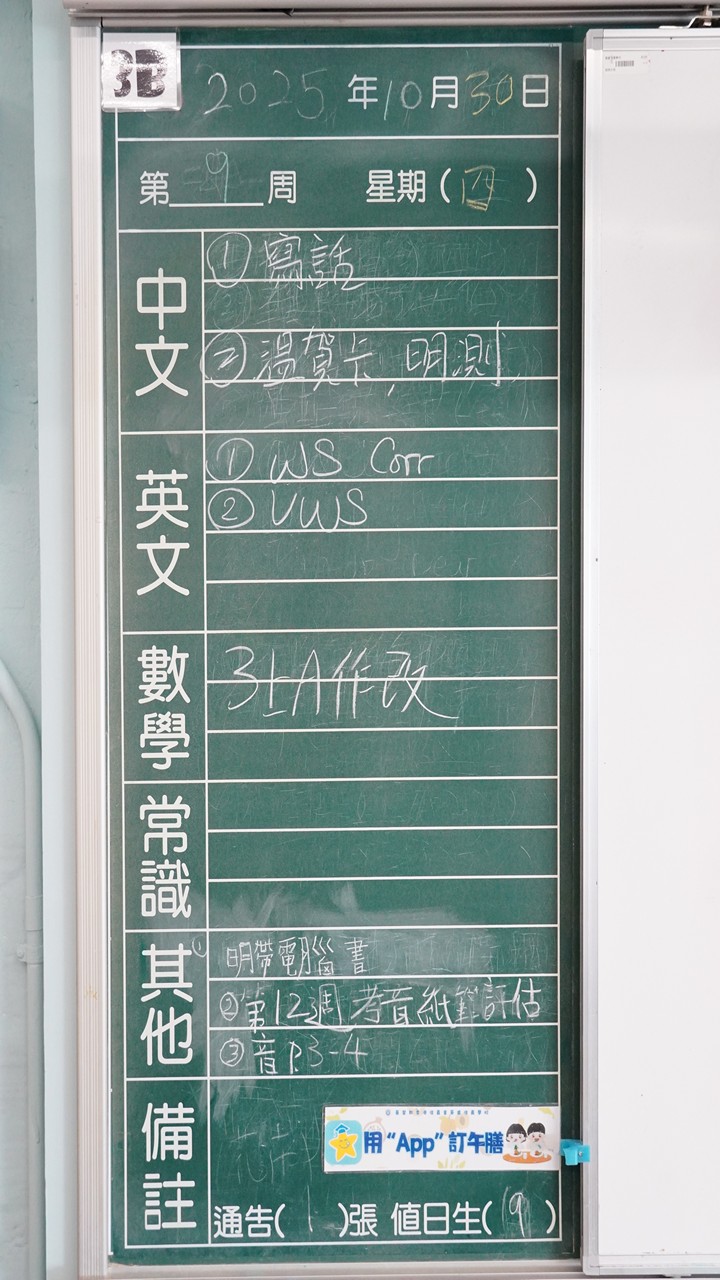 3B
2025年10月30日
第9周 星期(四)
中文
① 寫話
② 溫賀卡,明測
英文
① WS Corr
② VWS
數學
3上A作改
常識
其他
① 明帶電腦書
② 第12週考音紙筆評估
③ 音P.3-4
備註
用“App”訂午膳
通告(1)張 值日生(19)